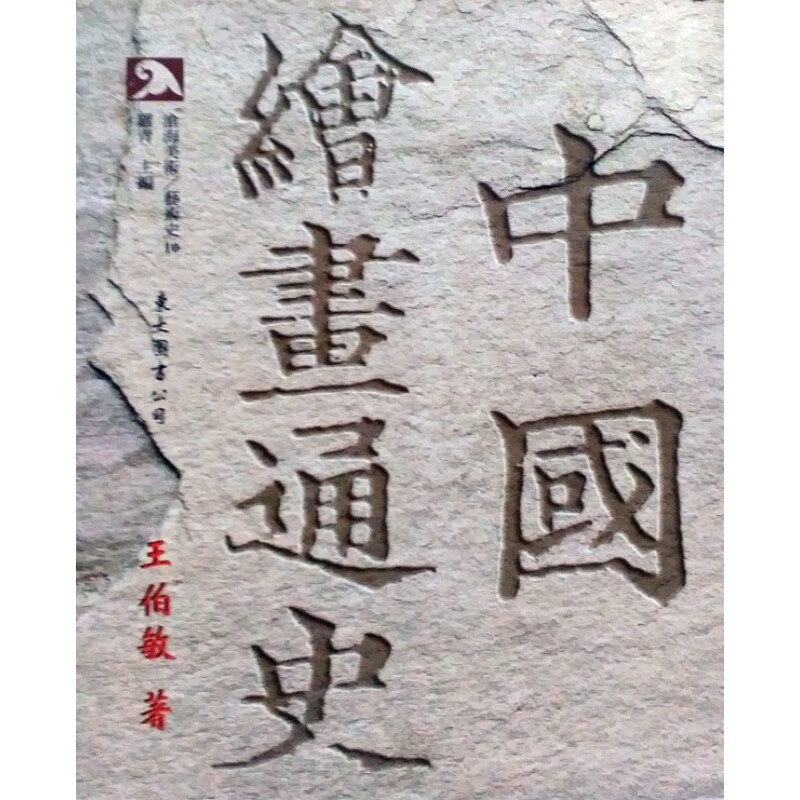 中國
繪畫通史
滄海美術/藝術史10
羅青 主編
東大圖書公司
王伯敏 著